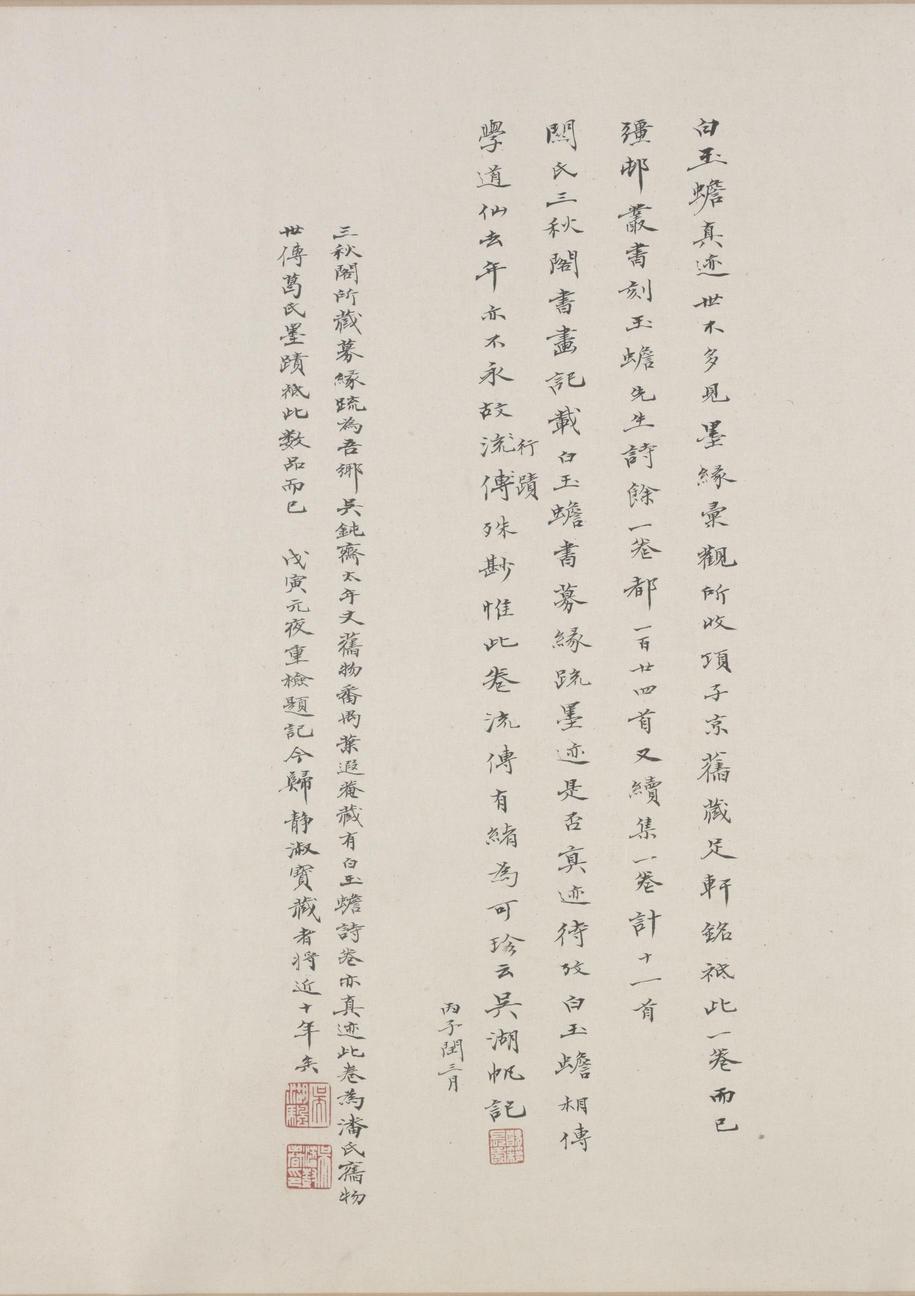 白玉蟾真迹世不多見墨緣彙觀所收項子京舊藏足軒銘祗此一卷而已
彊邨叢書刻玉蟾先生詩餘一卷都一百廿四首又續集一卷計十一首
關氏三秋閣書畫記載白玉蟾書募緣疏墨迹是否真迹待攷白玉蟾相傳
學道仙去年亦不永故流傳殊尠惟此卷流傳有緒為可珍云吳湖帆記
行蹟
丙子閏三月
三秋閣所藏募緣疏為吾鄉吳鈍齋太年丈舊物番禺葉遐菴藏有白玉蟾詩卷亦真迹此卷為潘氏舊物
世傳葛氏墨蹟祗此数品而已 戊寅元夜重檢題記今歸靜淑寶藏者將近十年矣